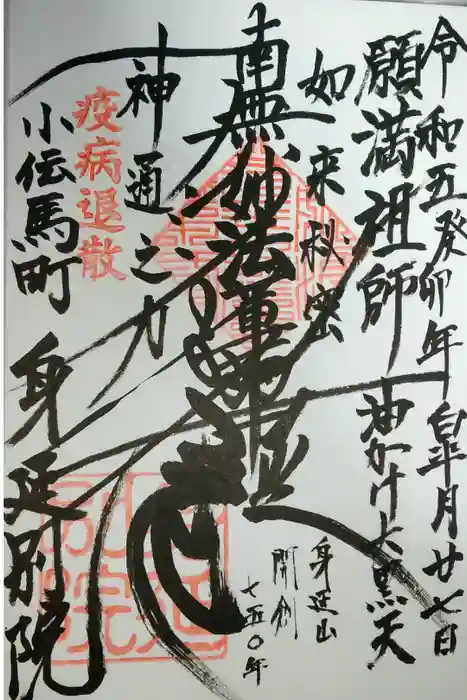 令和五癸卯年皐月廿七日
願満祖師
油かけ大黒天
如来秘密
身延山
開創
七五〇年
南無妙法蓮華経
神通之力
疫病退散
小伝馬町
身延別院